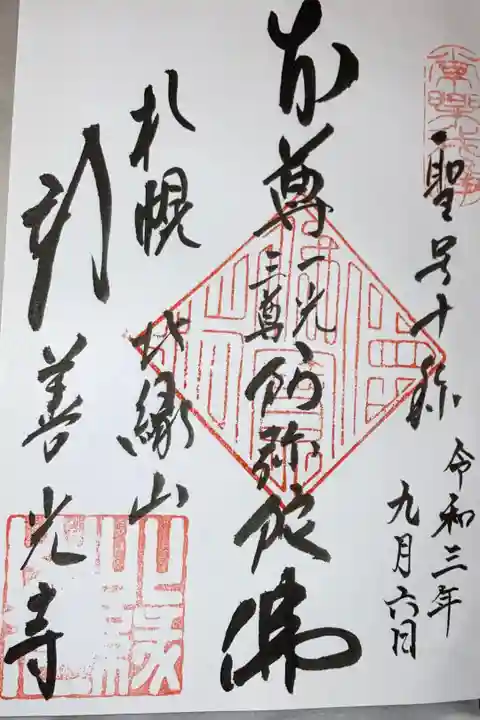 聖号十称
令和三年
九月六日
本尊
一光
三尊
阿弥陀佛
札幌 北縁山
新善光寺